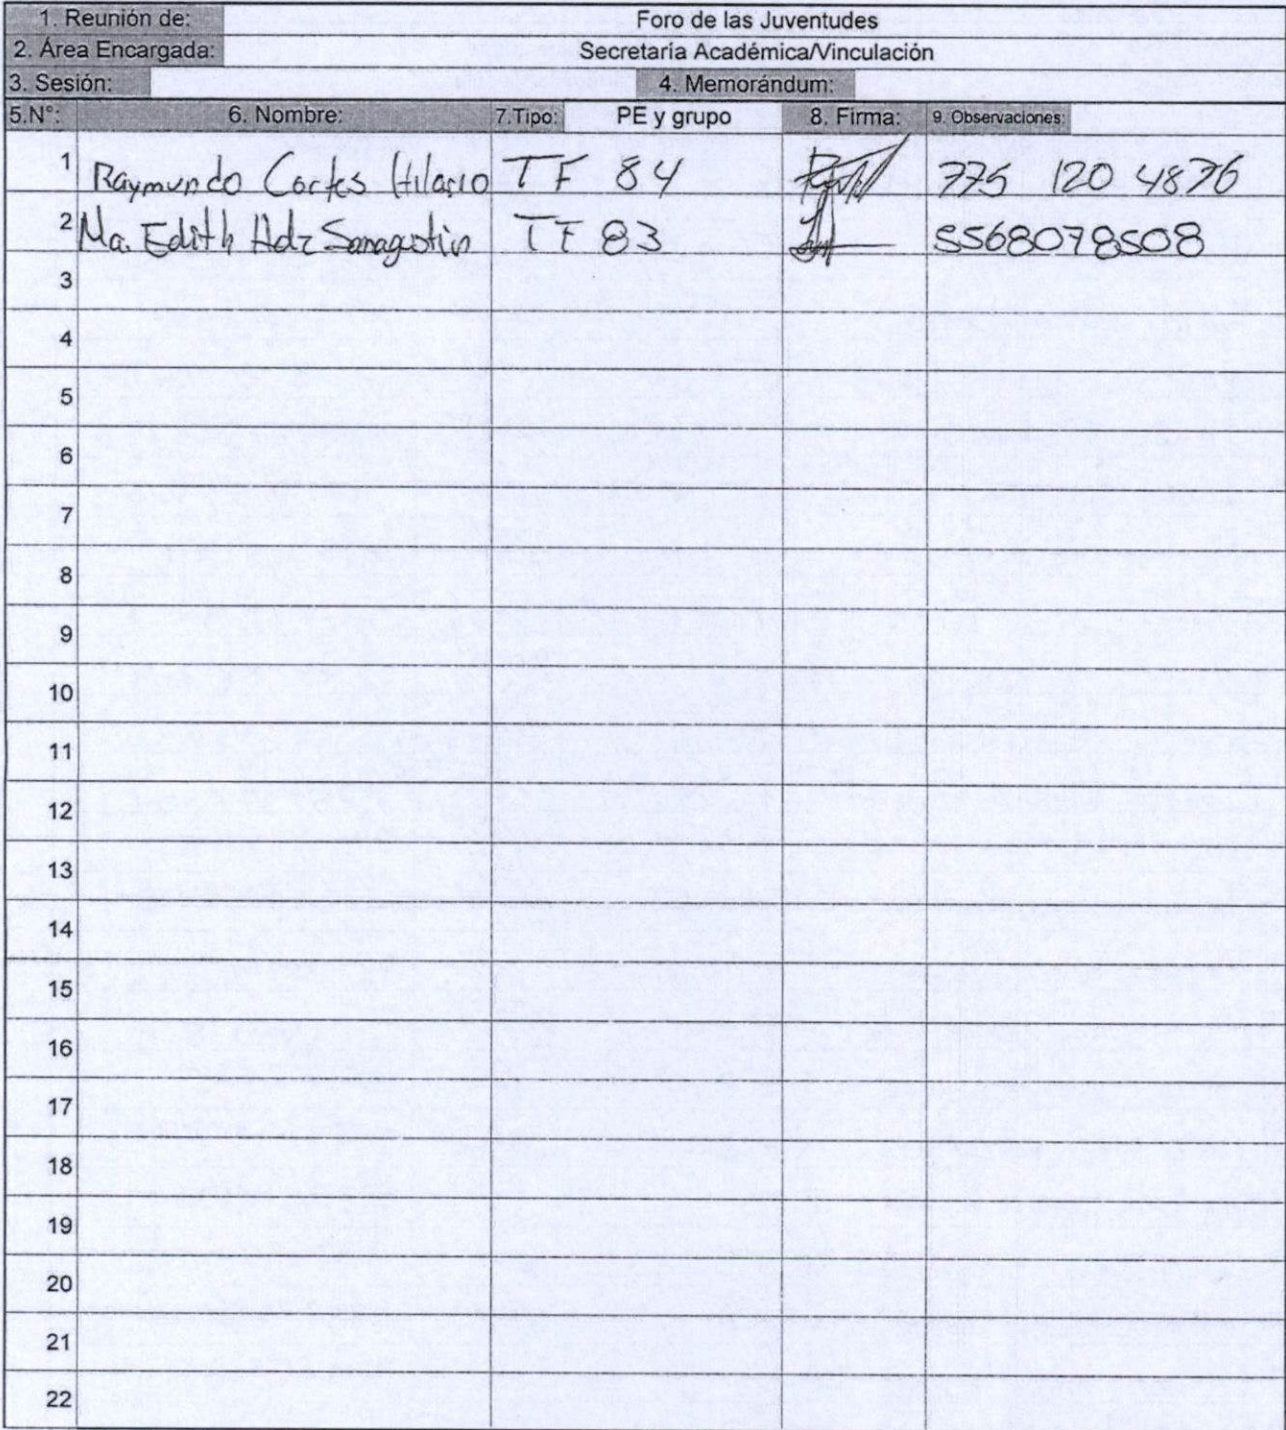 1. Reunión de: Foro de las Juventudes
2. Área Encargada: Secretaría Académica/Vinculación
3. Sesión: 4. Memorándum:
5.N°: 6. Nombre: 7.Tipo: PE y grupo 8. Firma: 9. Observaciones:
1 Raymundo Cortes Hilario TF 84 775 120 4876
2 Ma. Edith Hdz Sanagustin TF 83 5568078508
3
4
5
6
7
8
9
10
11
12
13
14
15
16
17
18
19
20
21
22